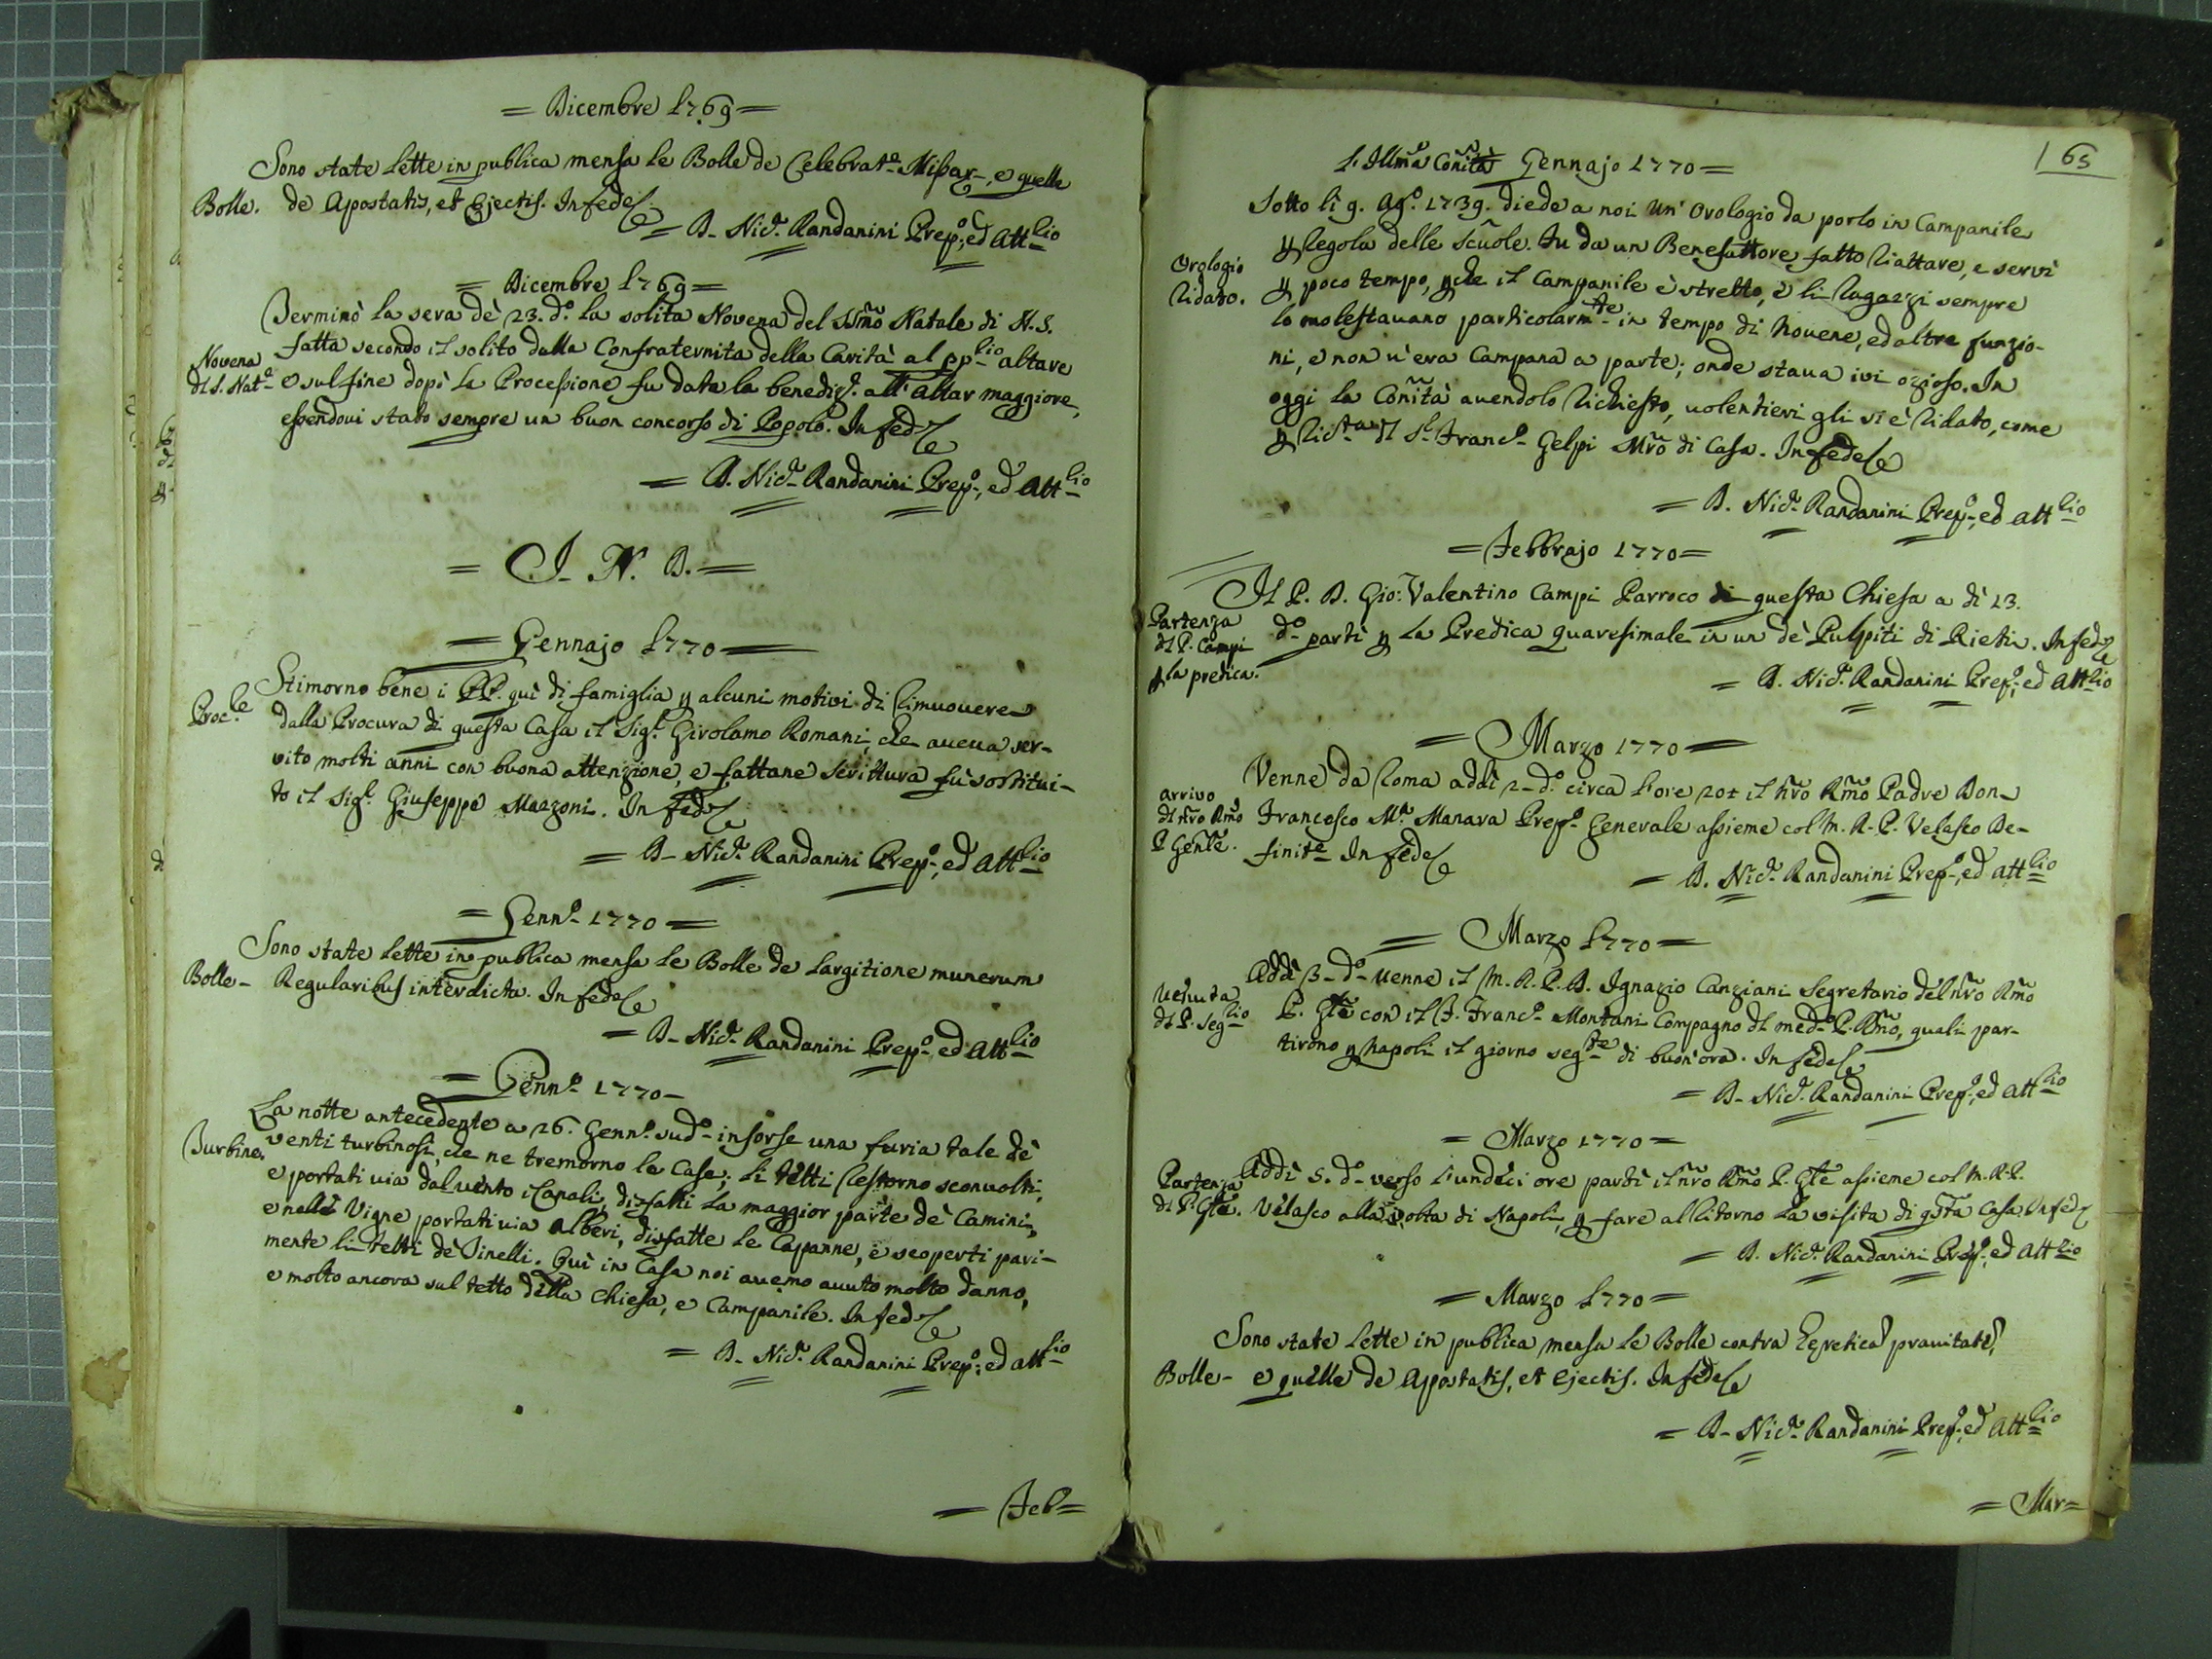 = Dicembre 1769 =
Sono state lette in publica mensa le Bolle de Celebrat.e Missar., e quelle
Bolle. de Apostatis, et Ejectis. In fede
= D. Nic.a Randanini Prep.o, ed Att.rio
= Dicembre 1769 =
Terminò la sera dè 23. d.o la solita Novena del SSmo Natale di N. S.
fatta secondo il solito dalla Confraternita della Carità al pp.rio altare
Novena
dl S. Nat.e e sul fine dopò la Processione fu data la benediz.e all' altar maggiore,
essendovi stato sempre un buon concorso di Popolo. In fede
= D. Nic.a Randanini Prep.o, ed Att.rio
= I. N. D. =
= Gennajo 1770 =
Stimorno bene i PP. quì di famiglia p alcuni motivi di rimuovere
Proc.re dalla Procura di questa Casa il Sig.r Girolamo Romani, che aveva ser-
vito molti anni con buona attenzione, e fattane Scrittura fù sostitui-
to il Sig.r Giuseppe Mazzoni. In fede
= D. Nic.a Randanini Prep.o, ed Att.rio
= Genn.o 1770 =
Sono state lette in publica mensa le Bolle de largitione munerum
Bolle - Regularibus interdicta. In fede
= D. Nic.a Randanini Prep.o, ed Att.rio
= Genn.o 1770 -
La notte antecedente a 26. Genn.o sud.o insorse una furia tale dè
Turbine. venti turbinosi, che ne tremorno le Case; li tetti restorno sconvolti,
e portati via dal vento i Canali, disfatti la maggior parte dè Camini,
e nelle Vigne portati via alberi, disfatte le Capanne, e scoperti pari-
mente li tetti dè Tinelli. Quì in Casa noi avemo avuto molto danno,
e molto ancora sul tetto della Chiesa, e Campanile. In fede
= D. Nic.a Randanini Prep.o, ed Att.rio
= Feb =
65
L'Illma Coñità Gennajo 1770 =
Sotto lì 9. Ag.o 1739. diede a noi un' Orologio da porlo in Campanile
p regola delle Scuole. Fu da un Benefattore fatto riattare, e servì
Orologio
ridato. p poco tempo, pche il Campanile è stretto, e li ragazzi sempre
lo molestavano particolarm.te in tempo di Novene, ed altre funzio-
ni, e non v'era Campana a parte; onde stava ivi ozioso. In
oggi la Coñità avendolo richiesto, volentieri gli si è ridato, come
p ric.ta dl S.r Franc.o Gelpi Mro di Casa. In fede
= D. Nic.a Randanini Prep.o, ed Att.rio
= Febbrajo 1770 =
Il P. D. Gio: Valentino Campi Parroco di questa Chiesa a dì 13.
Partenza
dl P. Campi
p la predica.
d.o partì p la Predica quaresimale in un dè Pulpiti di Rieti. In fede
= D. Nic.a Randanini Prep.o, ed Att.rio
= Marzo 1770 =
Venne da Roma addì 2. d.o circa l'ore 20 il nro Rmo Padre Don
Arrivo
dl nro Rmo
P. Genle.
Francesco M.a Manara Prep.o Generale assieme col M. R. P. Velasco De-
finit.e In fede
= D. Nic.a Randanini Prep.o, ed Att.rio
= Marzo 1770 =
Addì 3. d.o venne il M. R. P. D. Ignazio Canziani Segretario del nro Rmo
Venuta
dl P. Seg.rio
P. Gle con il F. Franc.o Montani Compagno dl med.o P. Rmo, quali par-
tirono p Napoli il giorno seg.te di buon'ora. In fede
= D. Nic.a Randanini Prep.o, ed Att.rio
= Marzo 1770 =
Addì 5. d.o verso l'undeci ore partì il nro Rmo P. Gle assieme col M. R. P.
Partenza
dl P. Gle. Velasco alla volta di Napoli, p fare al ritorno la visita di qsta Casa. In fede
= D. Nic.a Randanini Prep.o, ed Att.rio
= Marzo 1770 =
Sono state lette in publica mensa le Bolle contra Heretica pravitate,
Bolle - e quelle de Apostatis, et Ejectis. In fede
= D. Nic.a Randanini Prep.o, ed Att.rio
= Mar =